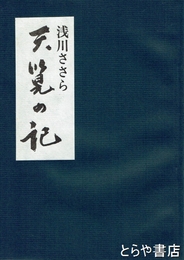 浅川ささら
天覧の記
とらや書店